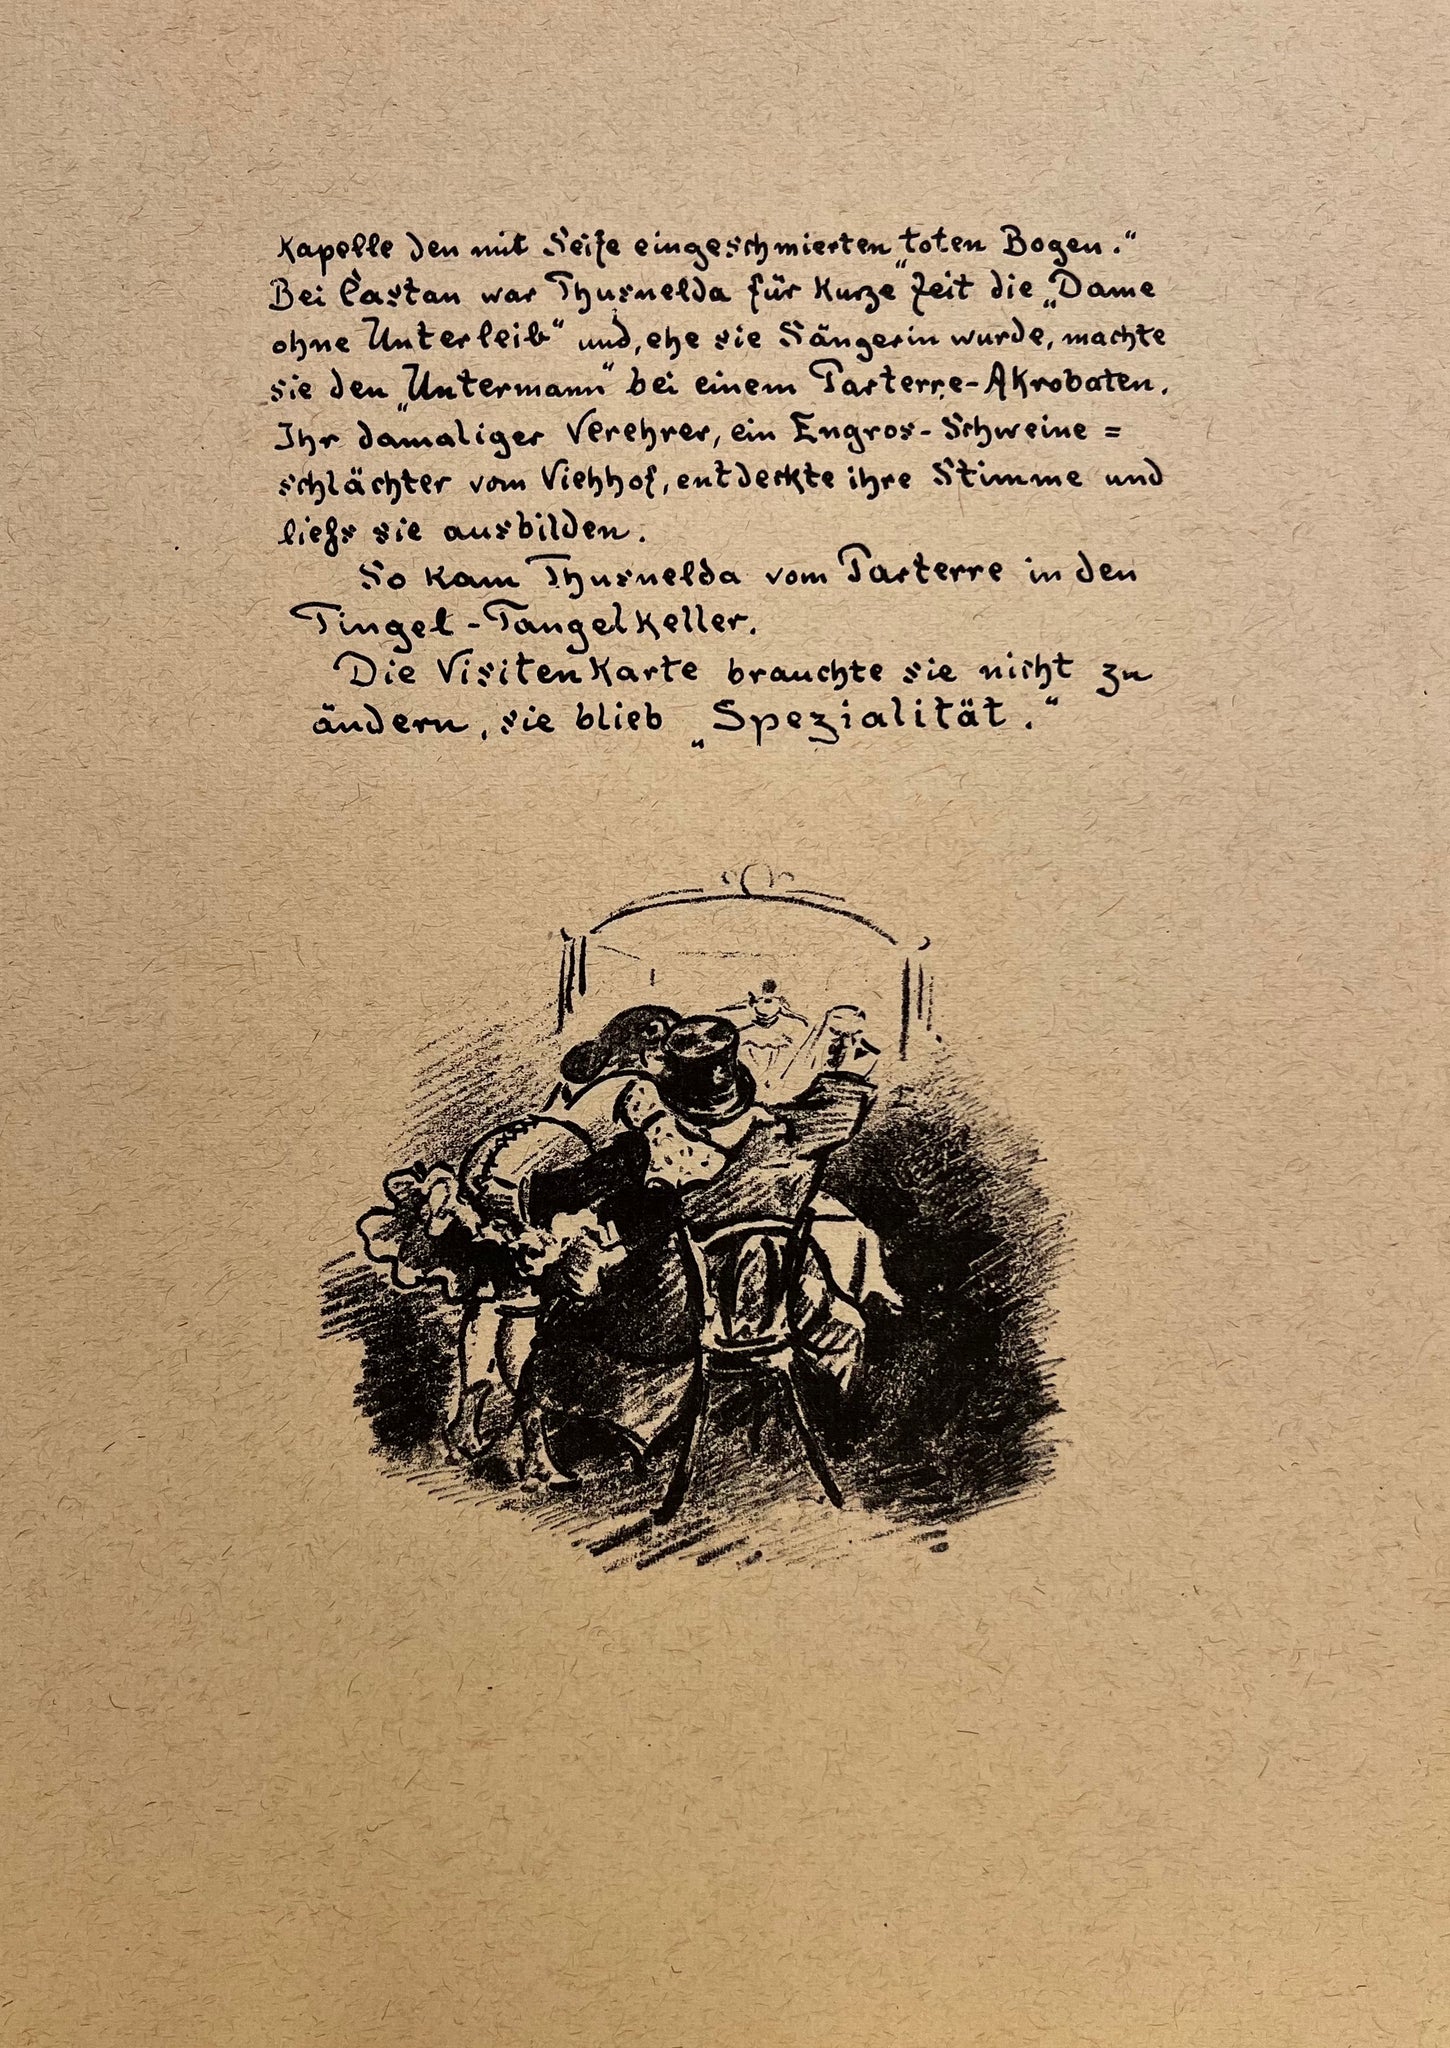 Kapelle den mit Seife eingeschmierten „toten Bogen.“
Bei Castan war Thusnelda für kurze Zeit die „Dame
ohne Unterleib“ und, ehe sie Sängerin wurde, machte
sie den „Untermann“ bei einem Parterre-Akrobaten.
Ihr damaliger Verehrer, ein Engros-Schweine=
schlächter vom Viehhof, entdeckte ihre Stimme und
liefs sie ausbilden.
So kam Thusnelda vom Parterre in den
Tingel-Tangelkeller.
Die Visitenkarte brauchte sie nicht zu
ändern, sie blieb „Spezialität.“